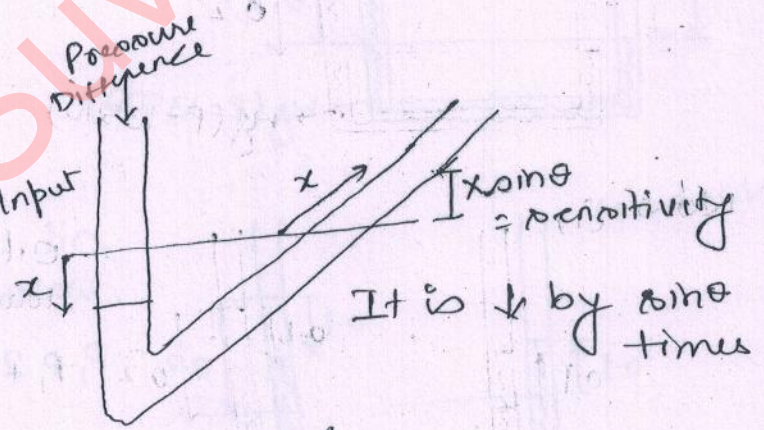 Pressure
Difference
Input
x
x
x sinθ
= sensitivity
It is ↓ by sinθ
times